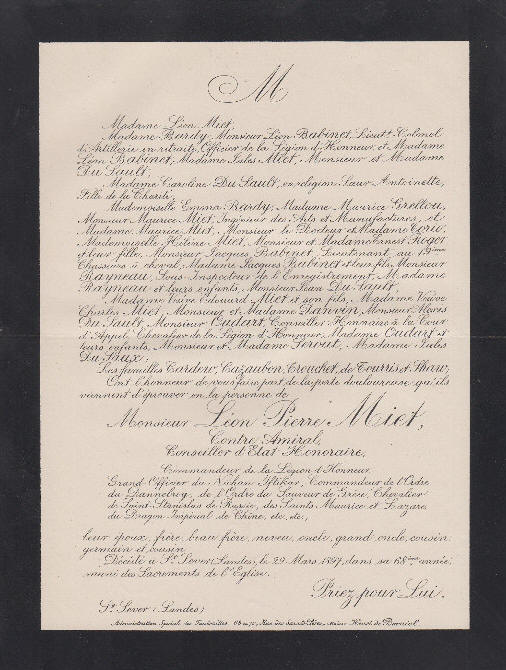 M
Madame Léon Miet,
Madame Bardy, Monsieur Léon Babinet, Lieutt Colonel
d'Artillerie en retraite, Officier de la Légion d'Honneur, et Madame
Léon Babinet, Madame Jules Miet, Monsieur et Madame
Du Sault,
Madame Caroline Du Sault, en religion Sœur Antoinette,
Fille de la Charité,
Mademoiselle Emma Bardy, Madame Maurice Grellou,
Monsieur Maurice Miet, Ingénieur des Arts et Manufactures, et
Madame Maurice Miet, Monsieur le Docteur et Madame
Mademoiselle Hélène Miet, Monsieur et Madame Ernest Roger
et leur fille, Monsieur Jacques Babinet, Lieutenant au
Chasseurs à cheval, Madame Jacques Babinet et leur fils, Monsieur
Rayneau, Sous-Inspecteur de l'Enregistrement, Madame
Rayneau et leurs enfants, Monsieur Jean Du Sault,
Madame Veuve Edouard Miet et son fils, Madame Veuve
Charles Miet, Monsieur et Madame Danvin, Monsieur
Du Sault, Monsieur Cudart, Conseiller Honoraire à la Cour
d'Appel, Chevalier de la Légion d'Honneur, Madame Cudart et
leurs enfants, Monsieur et Madame Servut, Madame Jules
Du Saux,
Les familles Cardew, Cazauben, Trouchet, de Tourris et Shaw,
Ont l'honneur de vous faire part de la perte douloureuse qu'ils
viennent d'éprouver en la personne de
Monsieur Léon Pierre Miet,
Contre Amiral,
Conseiller d'Etat Honoraire,
Commandeur de la Légion d'Honneur
Grand Officier du Nichan Iftikar, Commandeur de l'Ordre
du Dannebrog, de l'Ordre du Sauveur de Grèce, Chevalier
de Saint Stanislas de Russie, des Saints Maurice et Lazare,
du Dragon Impérial de Chine, etc, etc,
leur époux, frère, beau frère, neveu, oncle, grand oncle, cousin
germain et cousin
Décédé à St Sever (Landes), le 29 Mars 1897, dans sa 68ème année,
muni des Sacrements de l'Eglise.
Priez pour Lui.
St Sever (Landes)
Administration Spéciale des Funérailles, 68 et 70, Rue des Saints-Pères, Maison Henri de Borniol